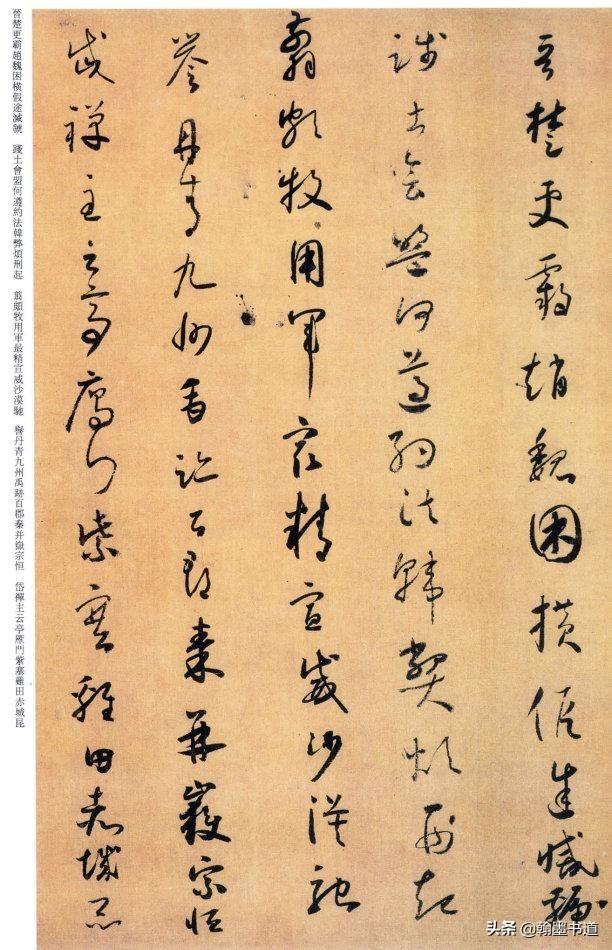 晉楚更霸趙魏困橫假途滅虢
踐土會盟何遵約法韓弊煩刑起
翦頗牧用軍最精宣威沙漠馳
譽丹青九州禹跡百郡秦并嶽宗恒
岱禪主云亭雁門紫塞雞田赤城昆
晉楚更霸趙魏困橫假途滅虢 踐土會盟何遵約法韓弊煩刑起 翦頗牧用軍最精宣威沙漠馳 譽丹青九州禹跡百郡秦并嶽宗恒 岱禪主云亭雁門紫塞雞田赤城昆
头条 @翰墨书道